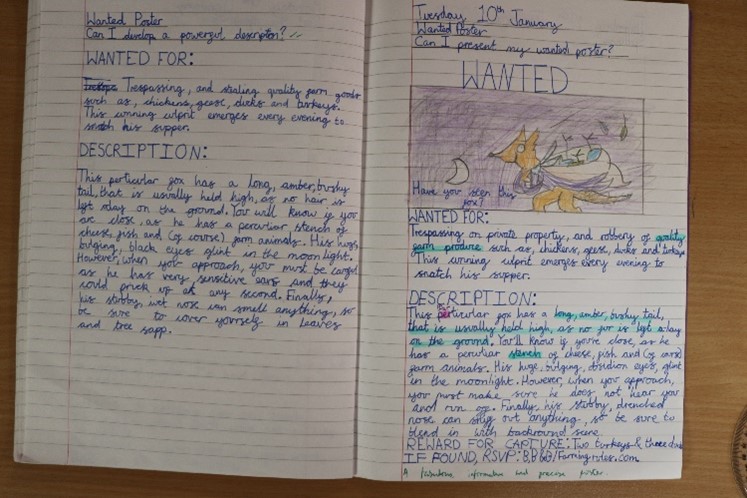 Wanted Poster
Can I develop a powerful description?
WANTED FOR:
Trespassing, and stealing quality farm goods
such as, chickens, geese, ducks and turkeys.
This cunning culprit emerges every evening to
snatch his supper.
DESCRIPTION:
This perticular fox has a long, amber, bushy
tail, that is usually held high, as no hair is
left alay on the ground. You will know if you
are close, as he has a percuriar stench of
cheese, fish and (of course) farm animals. His huge,
bulging, black eyes glint in the moonlight.
However, when you approach, you must be careful
as he has very sensitive ears and they
could prick up at any second. Finally,
his stubby, wet nose can smell anything, so
be sure to cover yourself in leaves
and tree sapp.
Tuesday 10th January
Wanted Poster
Can I present my wanted poster?
WANTED
Have you seen this
fox?
WANTED FOR:
Trespassing on private property, and robbery of quality
farm produce such as, chickens, geese, ducks and turkeys
This cunning culprit emerges every evening to
snatch his supper.
DESCRIPTION:
This perticular fox has a long, amber, bushy tail,
that is usually held high, as no fur is left alay
on the ground. You'll know if you're close, as he
has a percuriar stench of cheese, fish and (of course)
farm animals. His huge, bulging, obsidion eyes, glint
in the moonlight. However, when you approach,
you must make sure he does not hear you
and run off. Finally, his stubby, drenched
nose can sniff out anything, so be sure to
blend in with backround
REWARD FOR CAPTURE: Two turkeys & three
IF FOUND, RSVP: B,B&B/Farmingrules.com
A informative and precise poster.